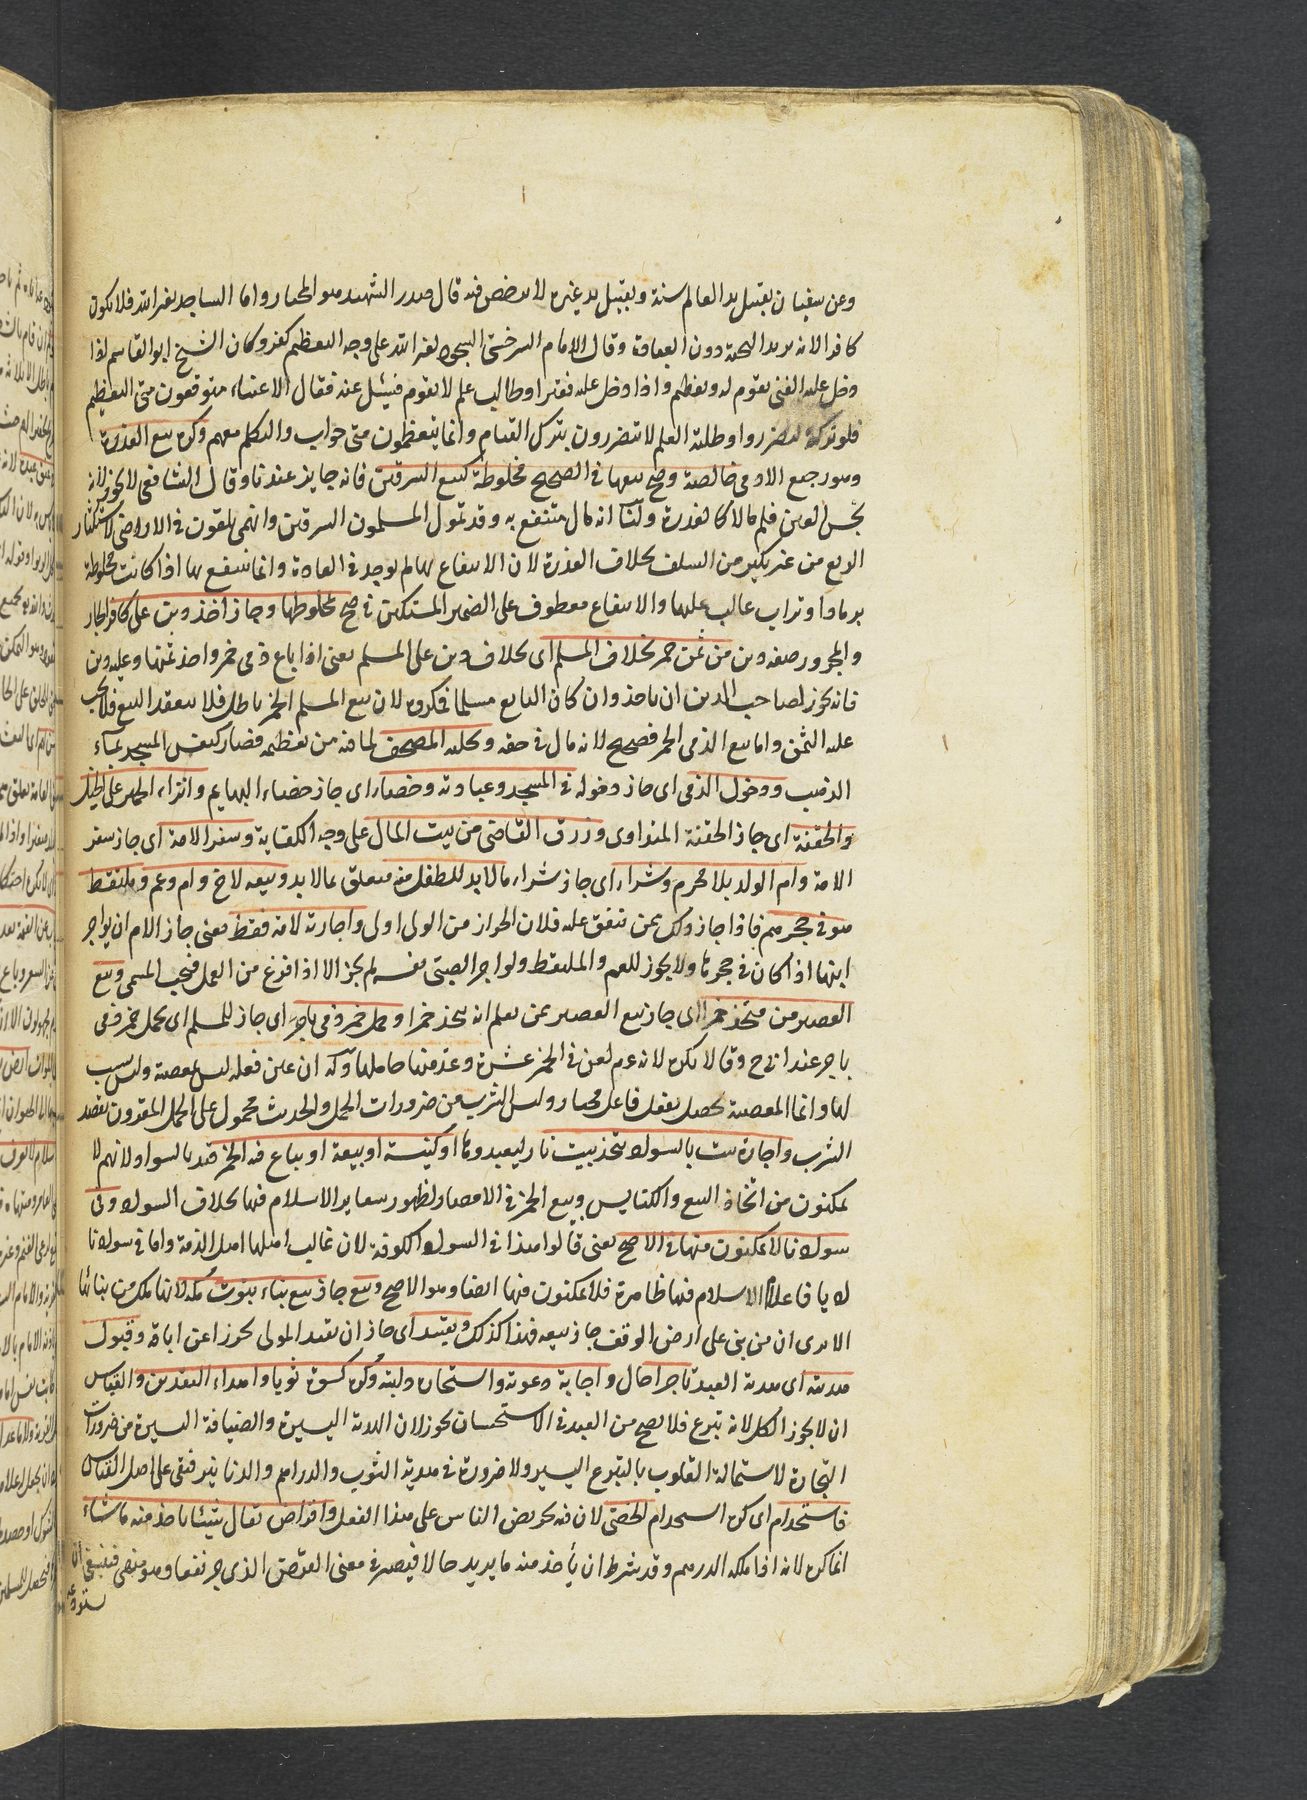 وعن سفيان تقبيل يد العالم سنة وتقبيل يد غيره لا يرخص فيه قال صدر الشهيد هو المختار واما الساجد لغير الله فلا يكون
كافرا لانه يريد التحية دون العبادة وقال الامام السرخسى السجود لغير الله على وجه التعظيم كفر وكان الشيخ ابو القاسم اذا
دخل عليه الغنى يقوم له ويعظم واذا دخل عليه فقير او طالب علم لا يقوم فسئل عنه فقال الاغنياء متوقعون منى التعظيم
فلو تركت لتضرروا وطلبة العلم لا يتضررون بترك القيام وانما يتعظمون منى جواب والتكلم معهم وكره بيع العذرة
وهو رجيع الادمى خالصة وصح بيعها فى الصحيح مخلوطة كبيع السرقين فانه جايز عندنا وقال الشافعى لا يجوز لانه
نجس العين فلم مالا كالعذرة ولنا انه مال منتفع به وقد تمول المسلمون السرقين وانهم يلقون فى الاراضى لاستكثار
الريع من غير نكير من السلف بخلاف العذرة لان الانتفاع بها لم يوجد فى العادة وانما ينتفع بها اذا كانت مخلوطة
برماد او تراب غالب عليها والانتفاع معطوف على الضمير المستكن فى صح بمخلوطها وجاز اخذ دين على كافر الجار
والمجرور صفة دين من ثمن خمر بخلاف المسلم اى بخلاف دين على المسلم يعنى اذا باع ذمى خمر واخذ ثمنها وعليه دين
فانه يجوز لصاحب الدين ان ياخذ وان كان البايع مسلما فيكره لان بيع المسلم الخمر باطل فلا ينعقد البيع فلا يجب
عليه الثمن واما بيع الذمى الخمر فصحيح لانه مال فى حقه وتحلية المصحف لما فيه من تعظيمه فصار كنقش المسجد بماء
الذهب ودخول الذمى اى جاز دخوله فى المسجد وعيادته وخصاء اى جاز خصاء البهايم وانزاء الحمير على الخيل
والحقنة اى جاز الحقنة المتداوى ورزق القاضى من بيت المال على وجه الكفاية وسفر الامة اى جاز سفر
الامة وام الولد بلا محرم وشراء اى جاز شراء ما لا بد للطفل منه متعلق بما لا بد وبيعه لاخ وام وعم وملتقط
هو فى حجرهم فاذا جاز ذلك بمن تنفق عليه فلان الحراز من الولى اولى واجارته لامه فقط يعنى جاز الام ان يؤاجر
ابنها اذا كان فى حجرها ولا يجوز للعم والملتقط ولو اجر الصبى نفسه لم يجز الا اذا فرغ من العمل فيجب المسمى وبيع
العصير من متخذ خمرا اى جاز بيع العصير بمن يعلم انه يتخذ خمرا وحمل خمر ذمى باجر اى جاز للمسلم اى يحمل خمر ذمى
باجر عند ابى ح وقالا يكره لانه عم لعن فى الخمر عشرة وعد منها حاملها وله ان عين فعله ليس بمعصية وليس بسبب
لها وانما المعصية يحصل بفعل فاعل مختار وليس الشرب من ضرورات الحمل والحديث محمول على الحمل المقرون بقصد
الشرب واجارة بيت بالسواد يتخذ بيت نار ليعبدوها او كنيسة او بيعة او يباع فيه الخمر قيد بالسواد لانهم لا
يمكنون من اتخاذ البيع والكنايس وبيع الخمر فى الامصار لظهور شعاير الاسلام فيها بخلاف السواد وفى
سوادنا لا يمكنون منها فى الاصح يعنى قالوا هذا فى السواد الكوفة لان غالب اهلها اهل الذمة واما فى سوادنا
فاعلام الاسلام فيها ظاهرة فلا يمكنون فيها ايضا وهو الاصح وبيع جاز بيع بناء بيوت مكه لانها ملك من بناها
الا يرى ان من بنى على ارض الوقف جاز بيعه فهذا كذلك وتقييد اى جاز ان يقيد المولى تحرزا عن اباقه وقبول
هديته اى هدية العبد تاجرا حال واجابة دعوته واستعارة دابته وكره كسوته ثوبا واهداء النقدين والقياس
ان لا يجوز الكل لانه تبرع فلا يصح من العبد فى الاستحسان يجوز لان الهدية اليسيرة والضيافة اليسيرة من ضرورات
التجارة لاستمالة القلوب بالتبرع اليسير ولا ضرورة فى هدية الثوب والدراهم والدنانير فبقى على اصل القياس
فاستخدام اى كره استخدام الخصى لان فيه تحريض الناس على هذا الفعل واقراض بقال شيئا ياخذ منه ما شاء
انما كره لانه اذا ملكه الدرهم وقد شرط ان يأخذ منه ما يريد حالا فيصير فى معنى القرض الذى جر نفعا وهو منهى فينبغى ان
ستودعه